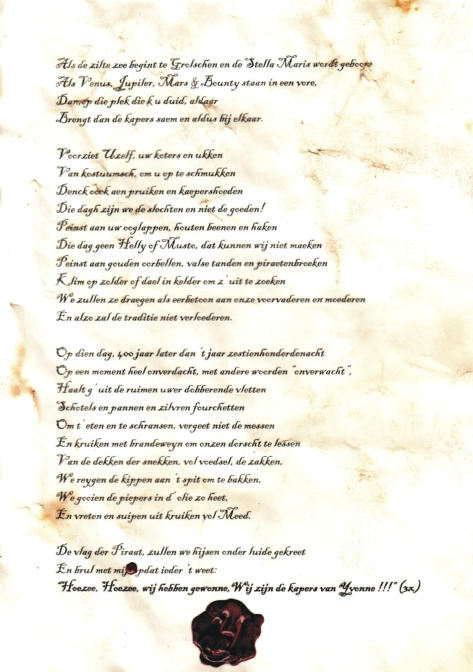 Als de zilte zee begint te Grolschen en de Stella Maris wordt geboore
Als Venus, Jupiler, Mars & Bounty staan in een vore,
Dan op die plek die k u duid, aldaar
Brengt dan de kapers saem en aldus bij elkaar.

Voorziet Uzelf, uw koters en ukken
Van kostuumsch, om u op te schmukken
Denck oock aen pruiken en kaepershoeden
Die dagh zijn we de slechten en niet de goeden!
Peinst aan uw ooglappen, houten beenen en haken
Die dag geen Helly of Musto, dat kunnen wij niet maeken
Peinst aan gouden oorbellen, valse tanden en piraetenbroeken
Klim op zolder of dael in kelder om z'uit te zoeken
We zullen ze draegen als eerbetoon aan onze voorvaderen en moederen
En alzo zal de traditie niet verloederen.

Op dien dag, 400 jaar later dan 't jaar zestienhonderdenacht
Op een moment heel onverdacht, met andere woorden "onverwacht",
Haalt g'uit de ruimen uwer dobberende vletten
Schotels en pannen en zilvren fourchetten
Om t'eten en te schransen, vergeet niet de messen
En kruiken met brandeweyn om onzen dorscht te lessen
Van de dekken der snekken, vol voedsel, de zakken,
We reygen de kippen aan 't spit om te bakken,
We gooien de piepers in d'olie zo heet,
En vreten en suipen uit kruiken vol Meed.

De vlag der Piraat, zullen we hijsen onder luide gekreet
En brul met mij opdat ieder 't weet:
"Hoezee, Hoezee, wij hebben gewonne, Wij zijn de kapers van Yvonne !!!" (3x)